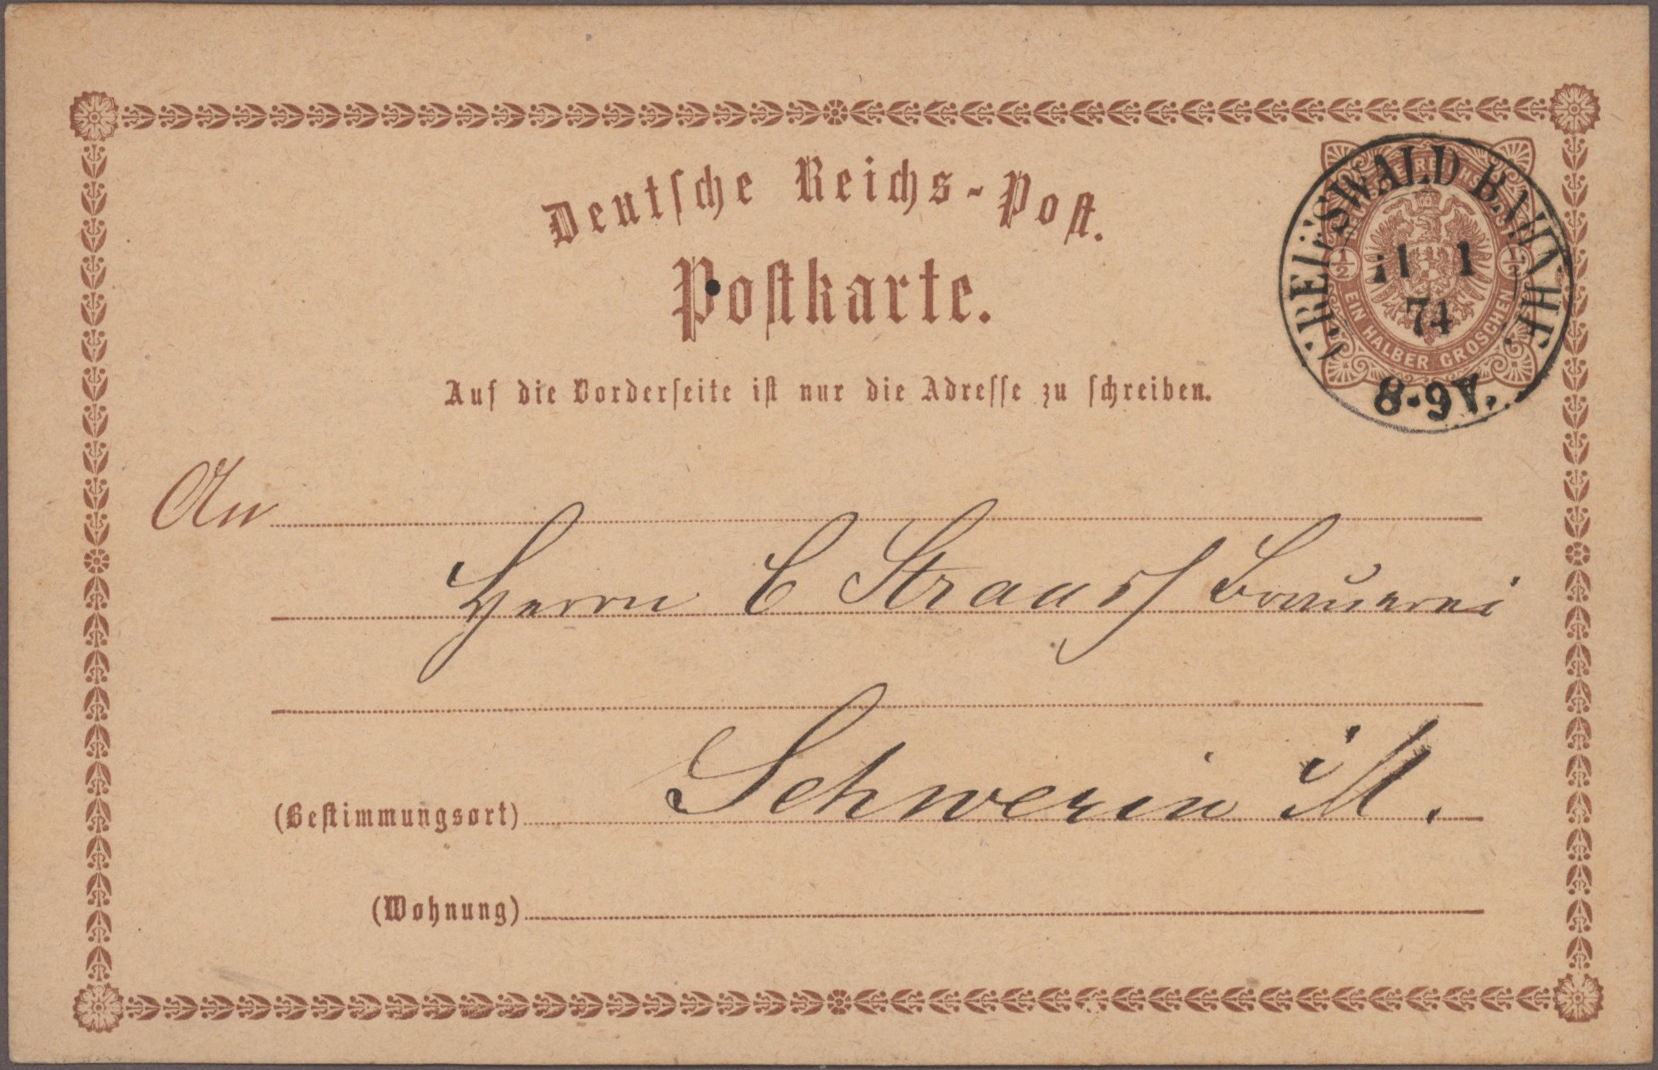 Deutsche Reichs-Post.
Postkarte.
GREIFSWALD BAHNHF.
11 1
74
8-9V.
½ ½
EIN HALBER GROSCHEN
Auf die Vorderseite ist nur die Adresse zu schreiben.
An
Herrn C Strauss Brauerei
Schwerin i M.
(Bestimmungsort)
(Wohnung)